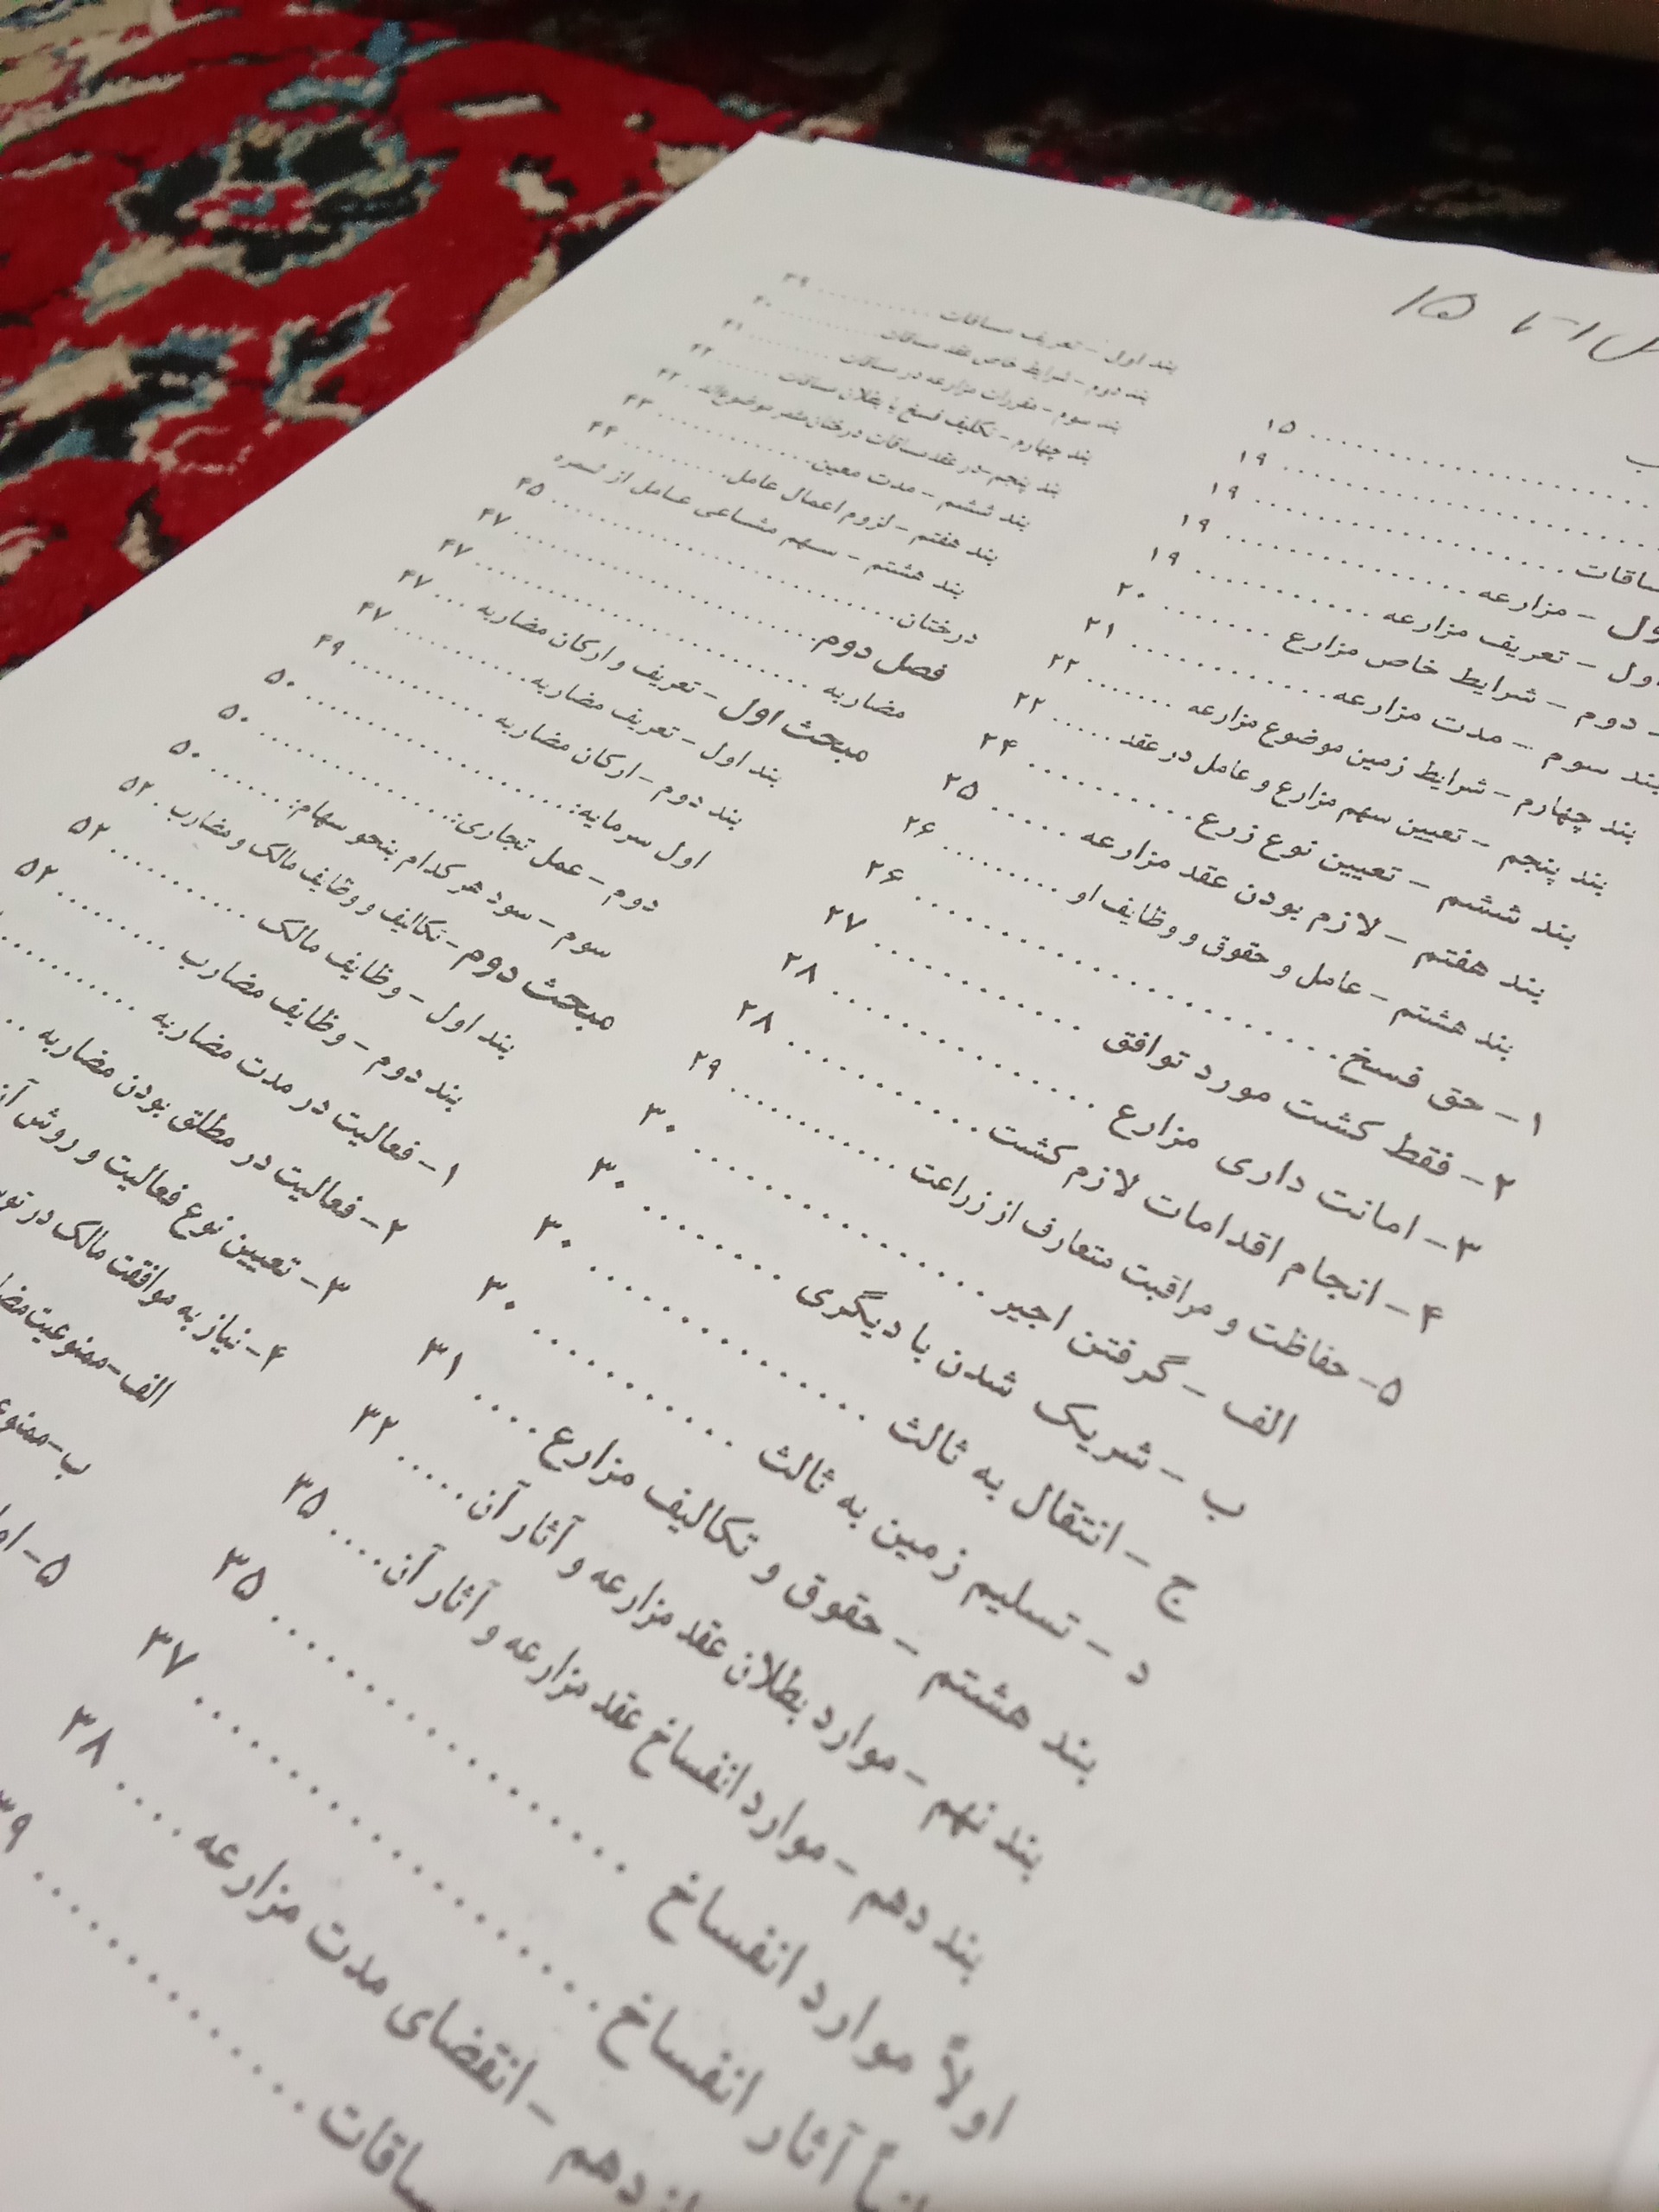 تا ۱۵
۱۵
۱۹
ساقات ۱۹
ول - مزارعه ۱۹
اول - تعریف مزارعه ۱۹
دوم - شرایط خاص مزارع ۲۰
بند سوم - مدت مزارعه ۲۱
بند چهارم - شرایط زمین موضوع مزارعه ۲۲
بند پنجم - تعیین سهم مزارع و عامل در عقد ۲۲
بند ششم - تعیین نوع زرع ۲۴
بند هفتم - لازم بودن عقد مزارعه ۲۵
بند هشتم - عامل و حقوق و وظایف او ۲۶
۱- حق فسخ ۲۶
۲- فقط کشت مورد توافق ۲۷
۳- امانت داری مزارع ۲۸
۴- انجام اقدامات لازم کشت ۲۸
۵- حفاظت و مراقبت متعارف از زراعت ۲۹
الف - گرفتن اجیر ۳۰
ب - شریک شدن با دیگری ۳۰
ج - انتقال به ثالث ۳۰
د - تسلیم زمین به ثالث ۳۰
بند هشتم - حقوق و تکالیف مزارع ۳۱
بند نهم - موارد بطلان عقد مزارعه و آثار آن ۳۲
بند دهم - موارد انفساخ عقد مزارعه و آثار آن ۳۵
اولاً موارد انفساخ ۳۵
آثار انفساخ ۳۷
ازدهم - انقضای مدت مزارعه ۳۸
ساقات ۳۹
بند اول - تعریف مساقات ۳۹
بند دوم - شرایط خاص عقد مساقات ۴۰
بند سوم - مقررات مزارعه در مساقات ۴۱
بند چهارم - تکلیف فسخ یا بطلان مساقات ۴۲
بند پنجم - در عقد مساقات درختان مثمر موضوع‌اند ۴۲
بند ششم - مدت معین ۴۳
بند هفتم - لزوم اعمال عامل ۴۴
بند هشتم - سهم مشاعی عامل از ثمره
درختان ۴۵
فصل دوم ۴۷
مضاربه ۴۷
مبحث اول - تعریف و ارکان مضاربه ۴۷
بند اول - تعریف مضاربه ۴۷
بند دوم - ارکان مضاربه ۴۹
اول سرمایه: ۵۰
دوم - عمل تجاری: ۵۰
سوم - سود هر کدام بنحو سهام: ۵۰
مبحث دوم - تکالیف و وظایف مالک و مضارب ۵۲
بند اول - وظایف مالک ۵۲
بند دوم - وظایف مضارب ۵۲
۱- فعالیت در مدت مضاربه
۲- فعالیت در مطلق بودن مضاربه
۳- تعیین نوع فعالیت و روش
۴- نیاز به موافقت مالک در
الف - ممنوعیت
ب - ممنوع
۵-